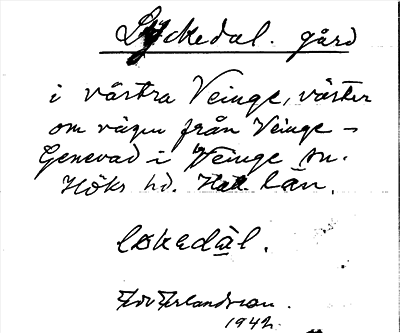 Lyckedal. gård
i västra Veinge, väster
om vägen från Veinge -
Genevad i Veinge sn.
Höks hd. Hall. län.
1942.